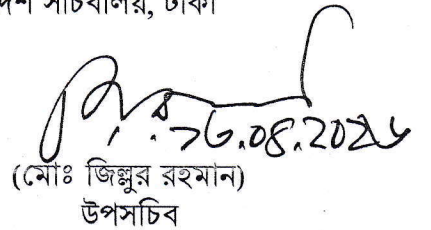 দেশ সচিবালয়, ঢাকা
১৬.০৪.২০২৬
(মোঃ জিল্লুর রহমান)
উপসচিব